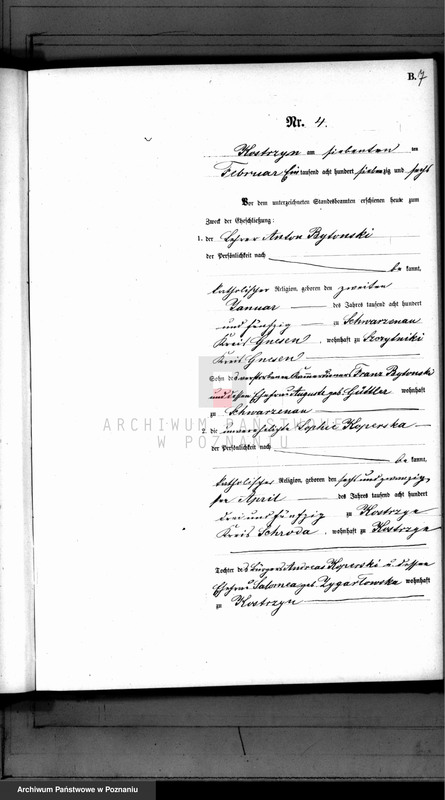 B. 7
Nr. 4.
Kostrzyn am siebenten ten
Februar Ein tausend acht hundert siebenzig und sechs
Vor dem unterzeichneten Standesbeamten erschienen heute zum
Zweck der Eheschließung:
1. der Lehrer Anton Bytonski
der Persönlichkeit nach
be kannt,
katholischer Religion, geboren den zweiten
Januar des Jahres tausend acht hundert
und fünfzig zu Schwarzenau
Kreis Gnesen, wohnhaft zu Szczytniki
Kreis Gnesen
Sohn des verstorbenen Franz Bytonski
und dessen Ehefrau Auguste geb. Güttler wohnhaft
zu Schwarzenau
ARCHIWUM PAŃSTWOWE
W POZNANIU
2. die unverehelichte Sophie Koperska
der Persönlichkeit nach
be kannt,
katholischer Religion, geboren den sechs und zwanzig,
sten April des Jahres tausend acht hundert
drei und fünfzig zu Kostrzyn
Kreis Schroda, wohnhaft zu Kostrzyn
Tochter des Bürgers Andreas Koperski u. dessen
Ehefrau Salomea geb. Zygarlowska wohnhaft
zu Kostrzyn
Archiwum Państwowe w Poznaniu